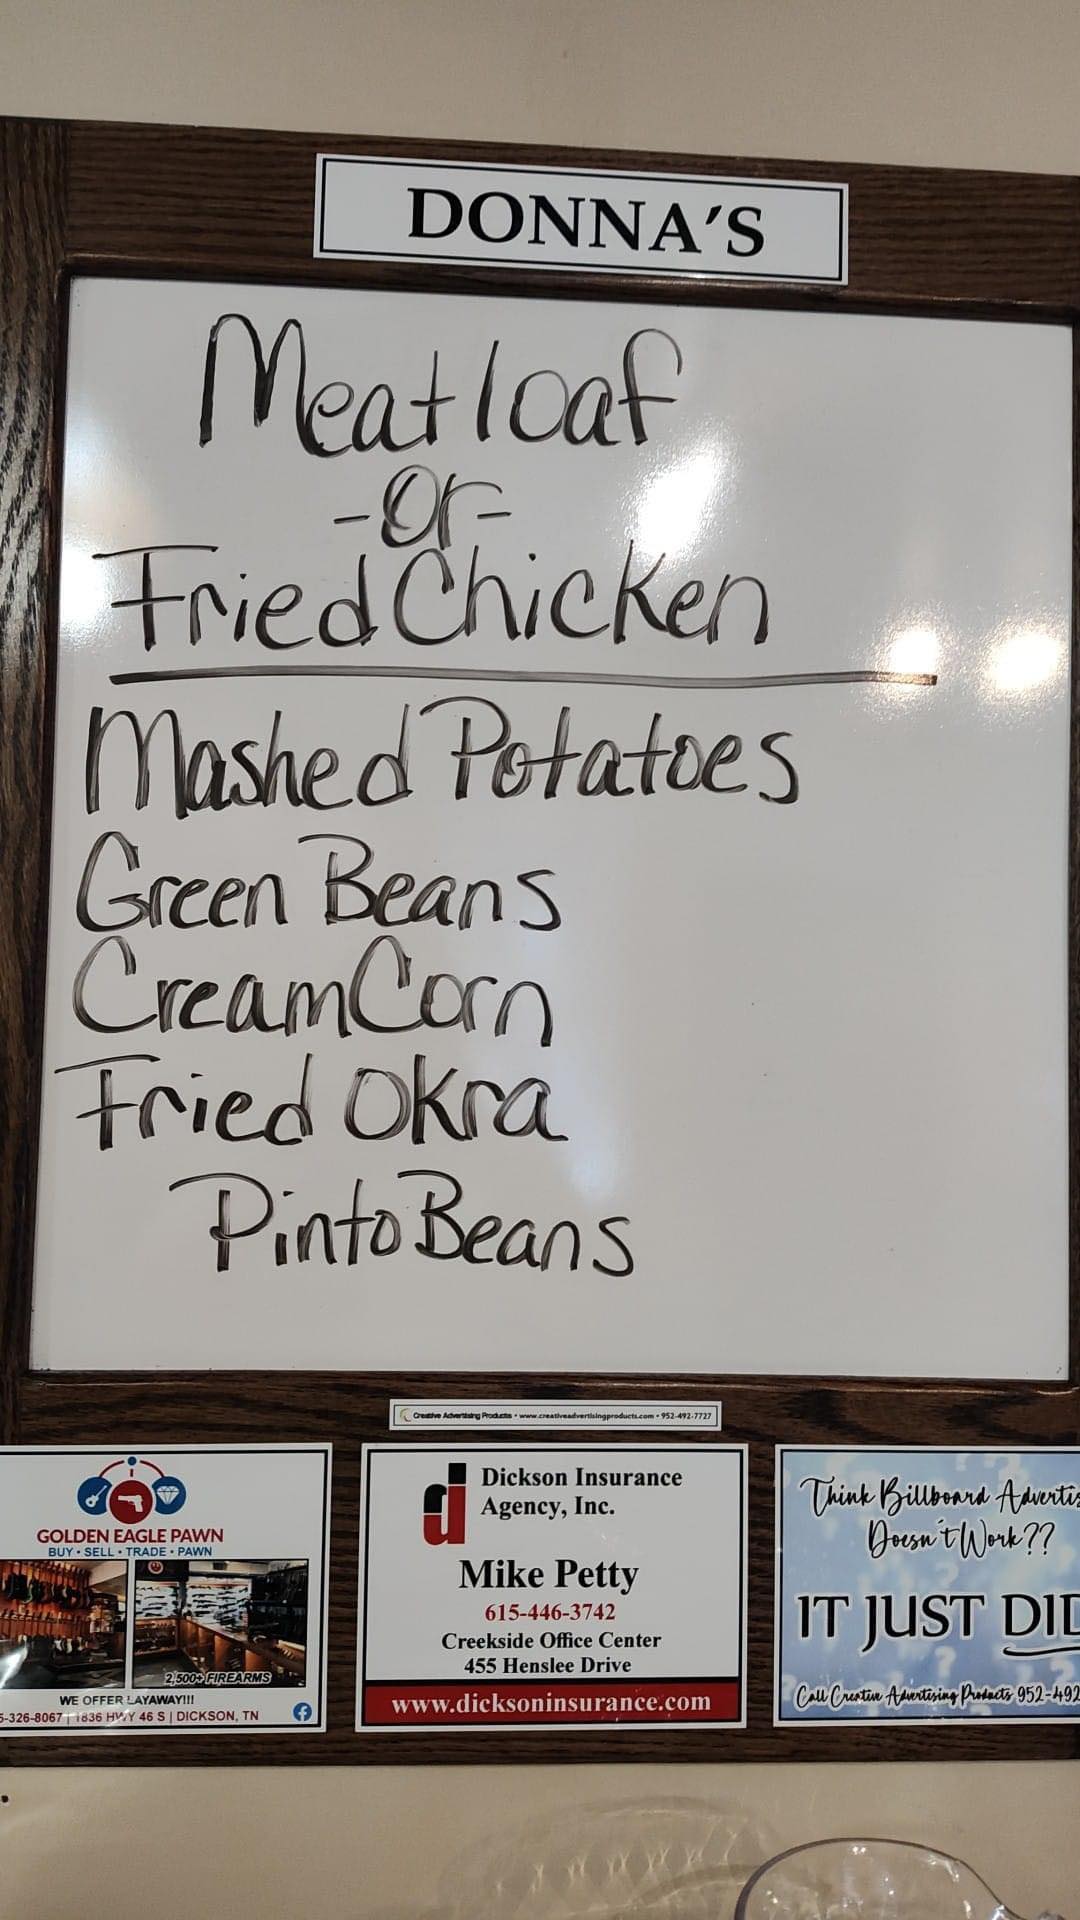 DONNA'S
Meatloaf
-Or-
Fried Chicken
Mashed Potatoes
Green Beans
Cream Corn
Fried Okra
Pinto Beans
Creative Advertising Products • www.creativeadvertisingproducts.com • 952-492-7727
GOLDEN EAGLE PAWN
BUY • SELL • TRADE • PAWN
2,500+ FIREARMS
WE OFFER LAYAWAY!!!
5-326-8067 | 1836 HWY 46 S | DICKSON, TN
di
Dickson Insurance
Agency, Inc.
Mike Petty
615-446-3742
Creekside Office Center
455 Henslee Drive
www.dicksoninsurance.com
Think Billboard Advertis
Doesn't Work??
IT JUST DID
Call Creative Advertising Products 952-492